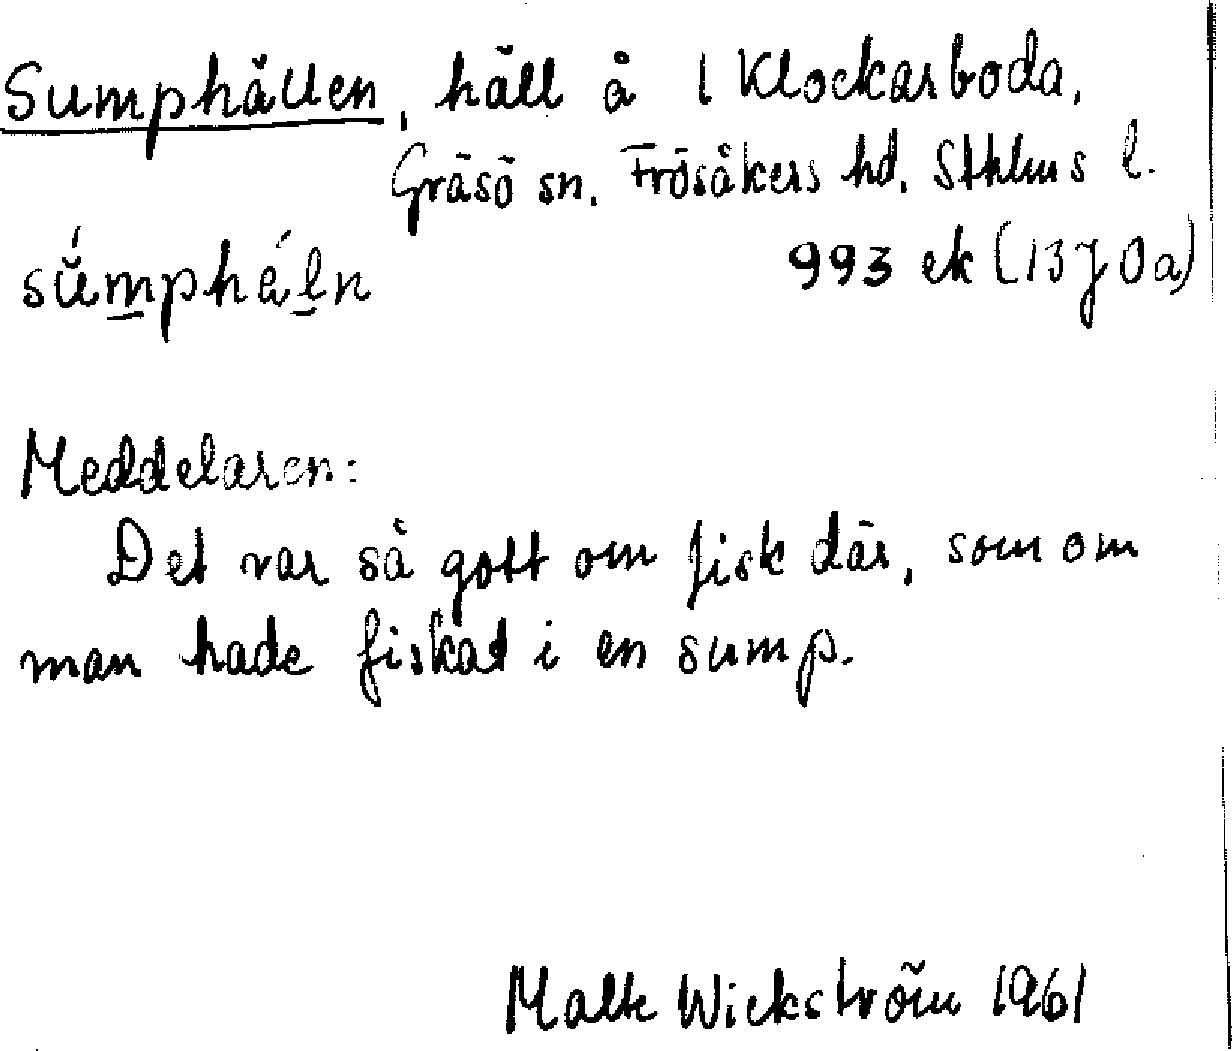 Sumphällen, häll å 1 Klockarboda,
Gräsö sn. Frösåkers hd. Sthlms l.
993 ek (13 J 0a)
Meddelaren:
Det var så gott om fisk där, som om
man hade fiskat i en sump.
Malte Wickström 1961